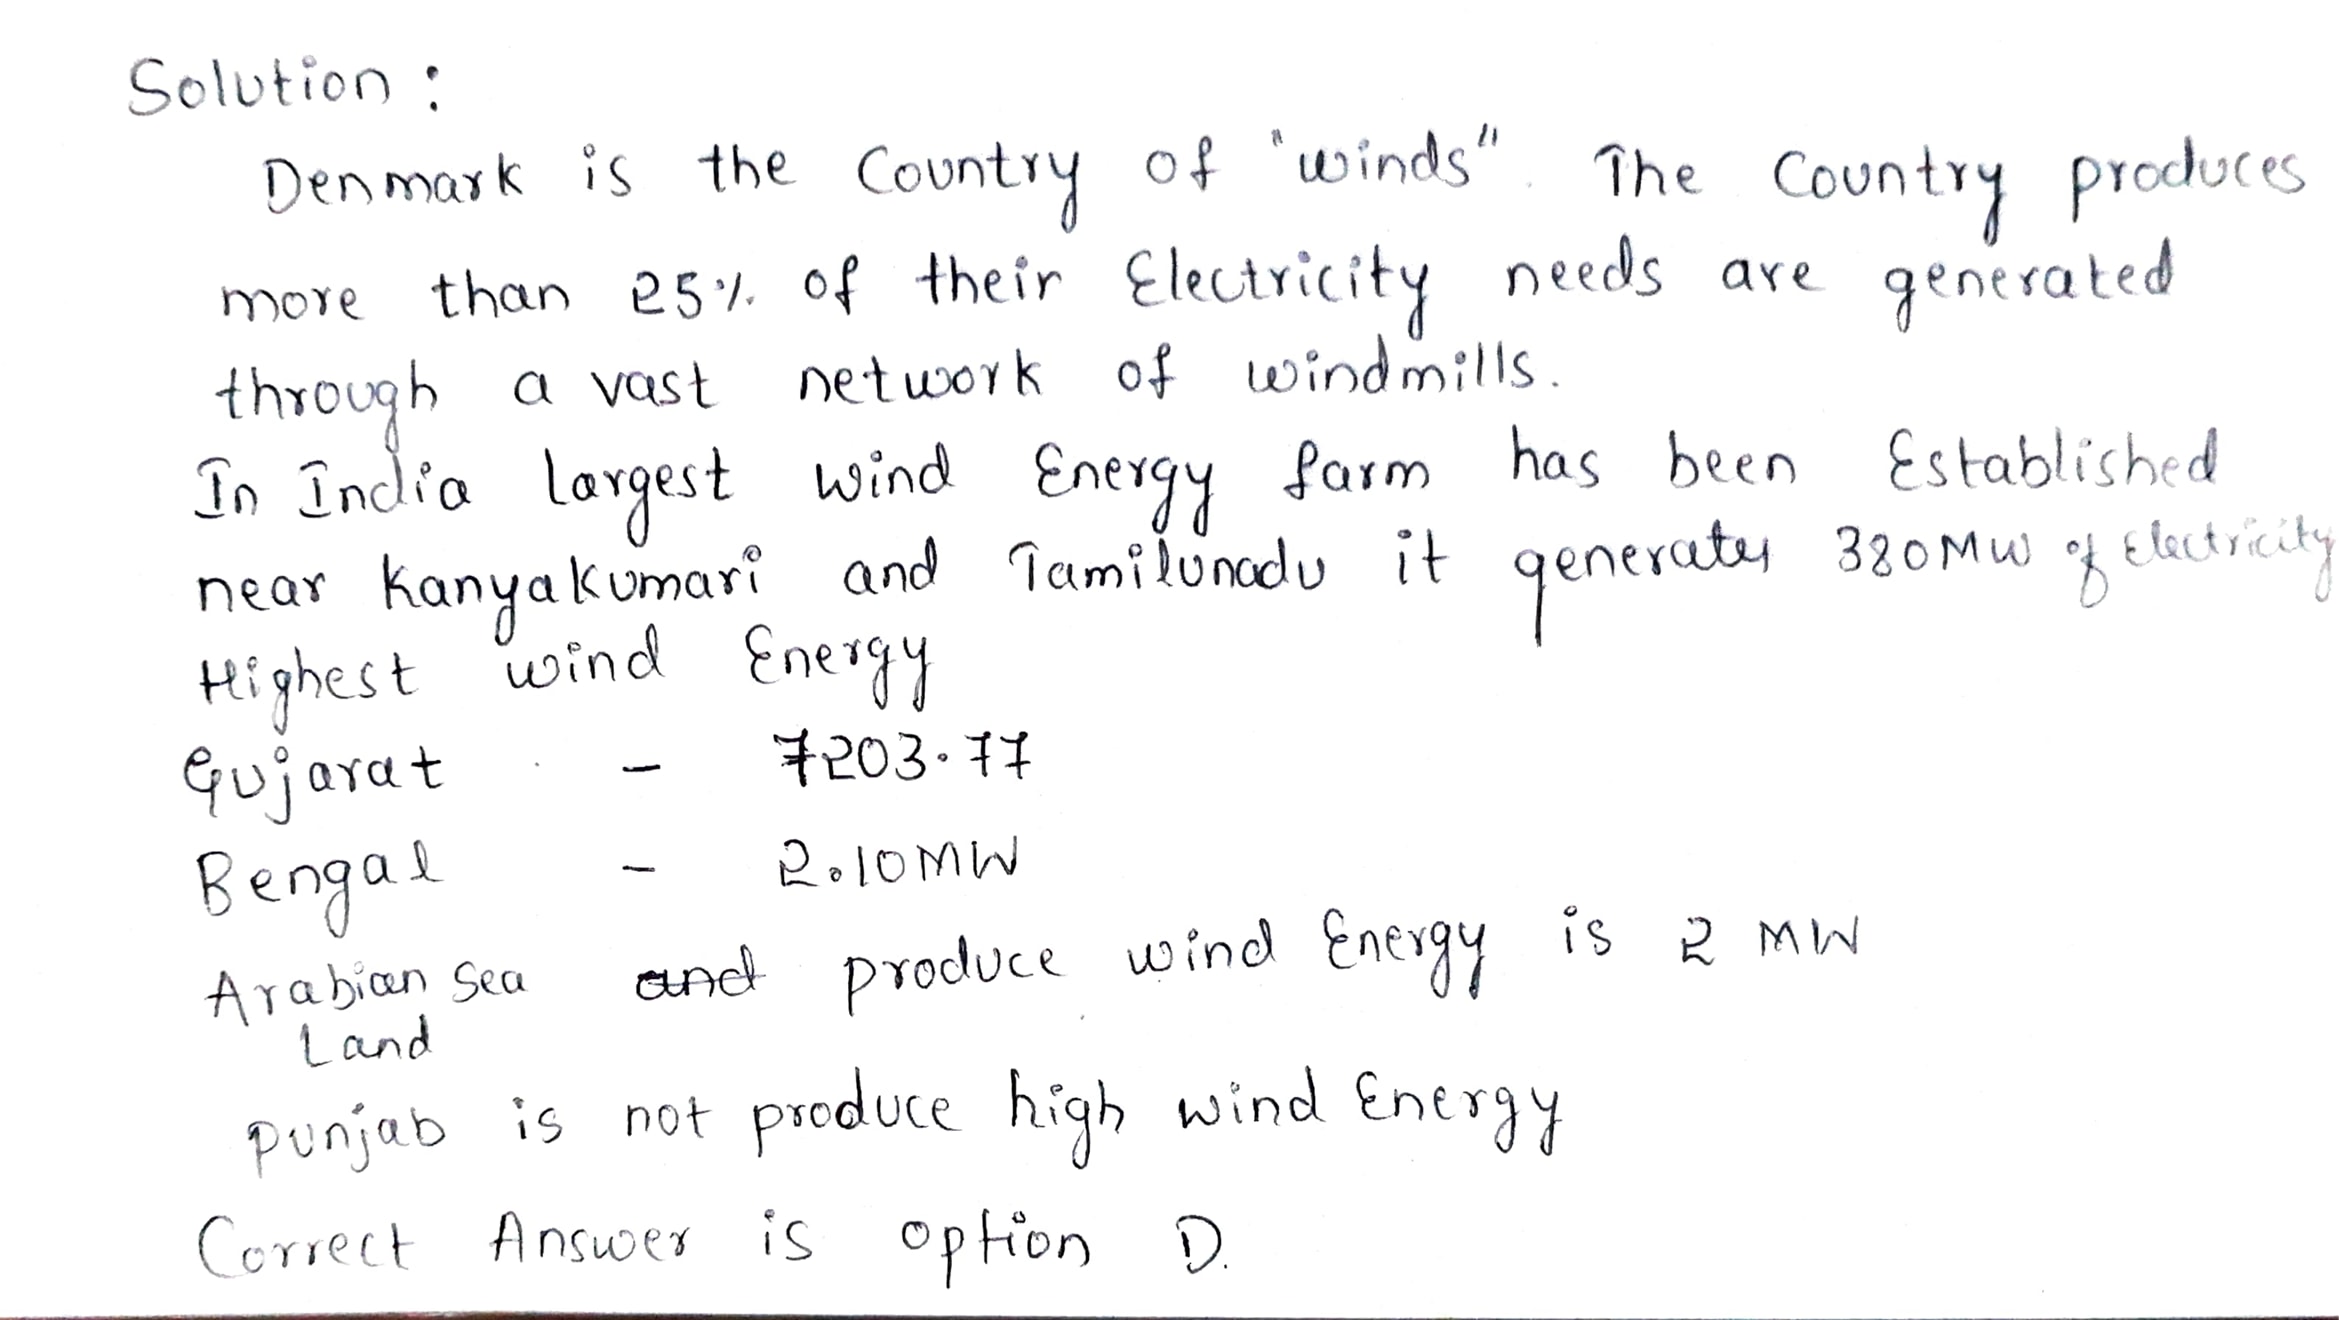 Solution :
Denmark is the Country of "winds". The Country produces
more than 25% of their Electricity needs are generated
through a vast network of windmills.
In India largest wind Energy farm has been Established
near Kanyakumari and Tamilunadu it generates 380MW of Electricity
Highest wind Energy
Gujarat - 7203.77
Bengal - 2.10MW
Arabian Sea and produce wind Energy is 2 MW
Land
punjab is not produce high wind Energy
Correct Answer is option D.